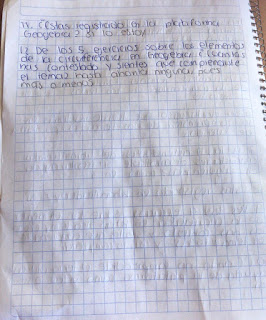 11. ¿Estas registrado en la plataforma
Geogebra? si lo estoy
12. De los 5 ejercicios sobre los elementos
de la circunferencia en Geogebra ¿Cuantos
has contestado y sientes que comprendiste
el tema? hasta ahorita ninguna pues
mas o menos